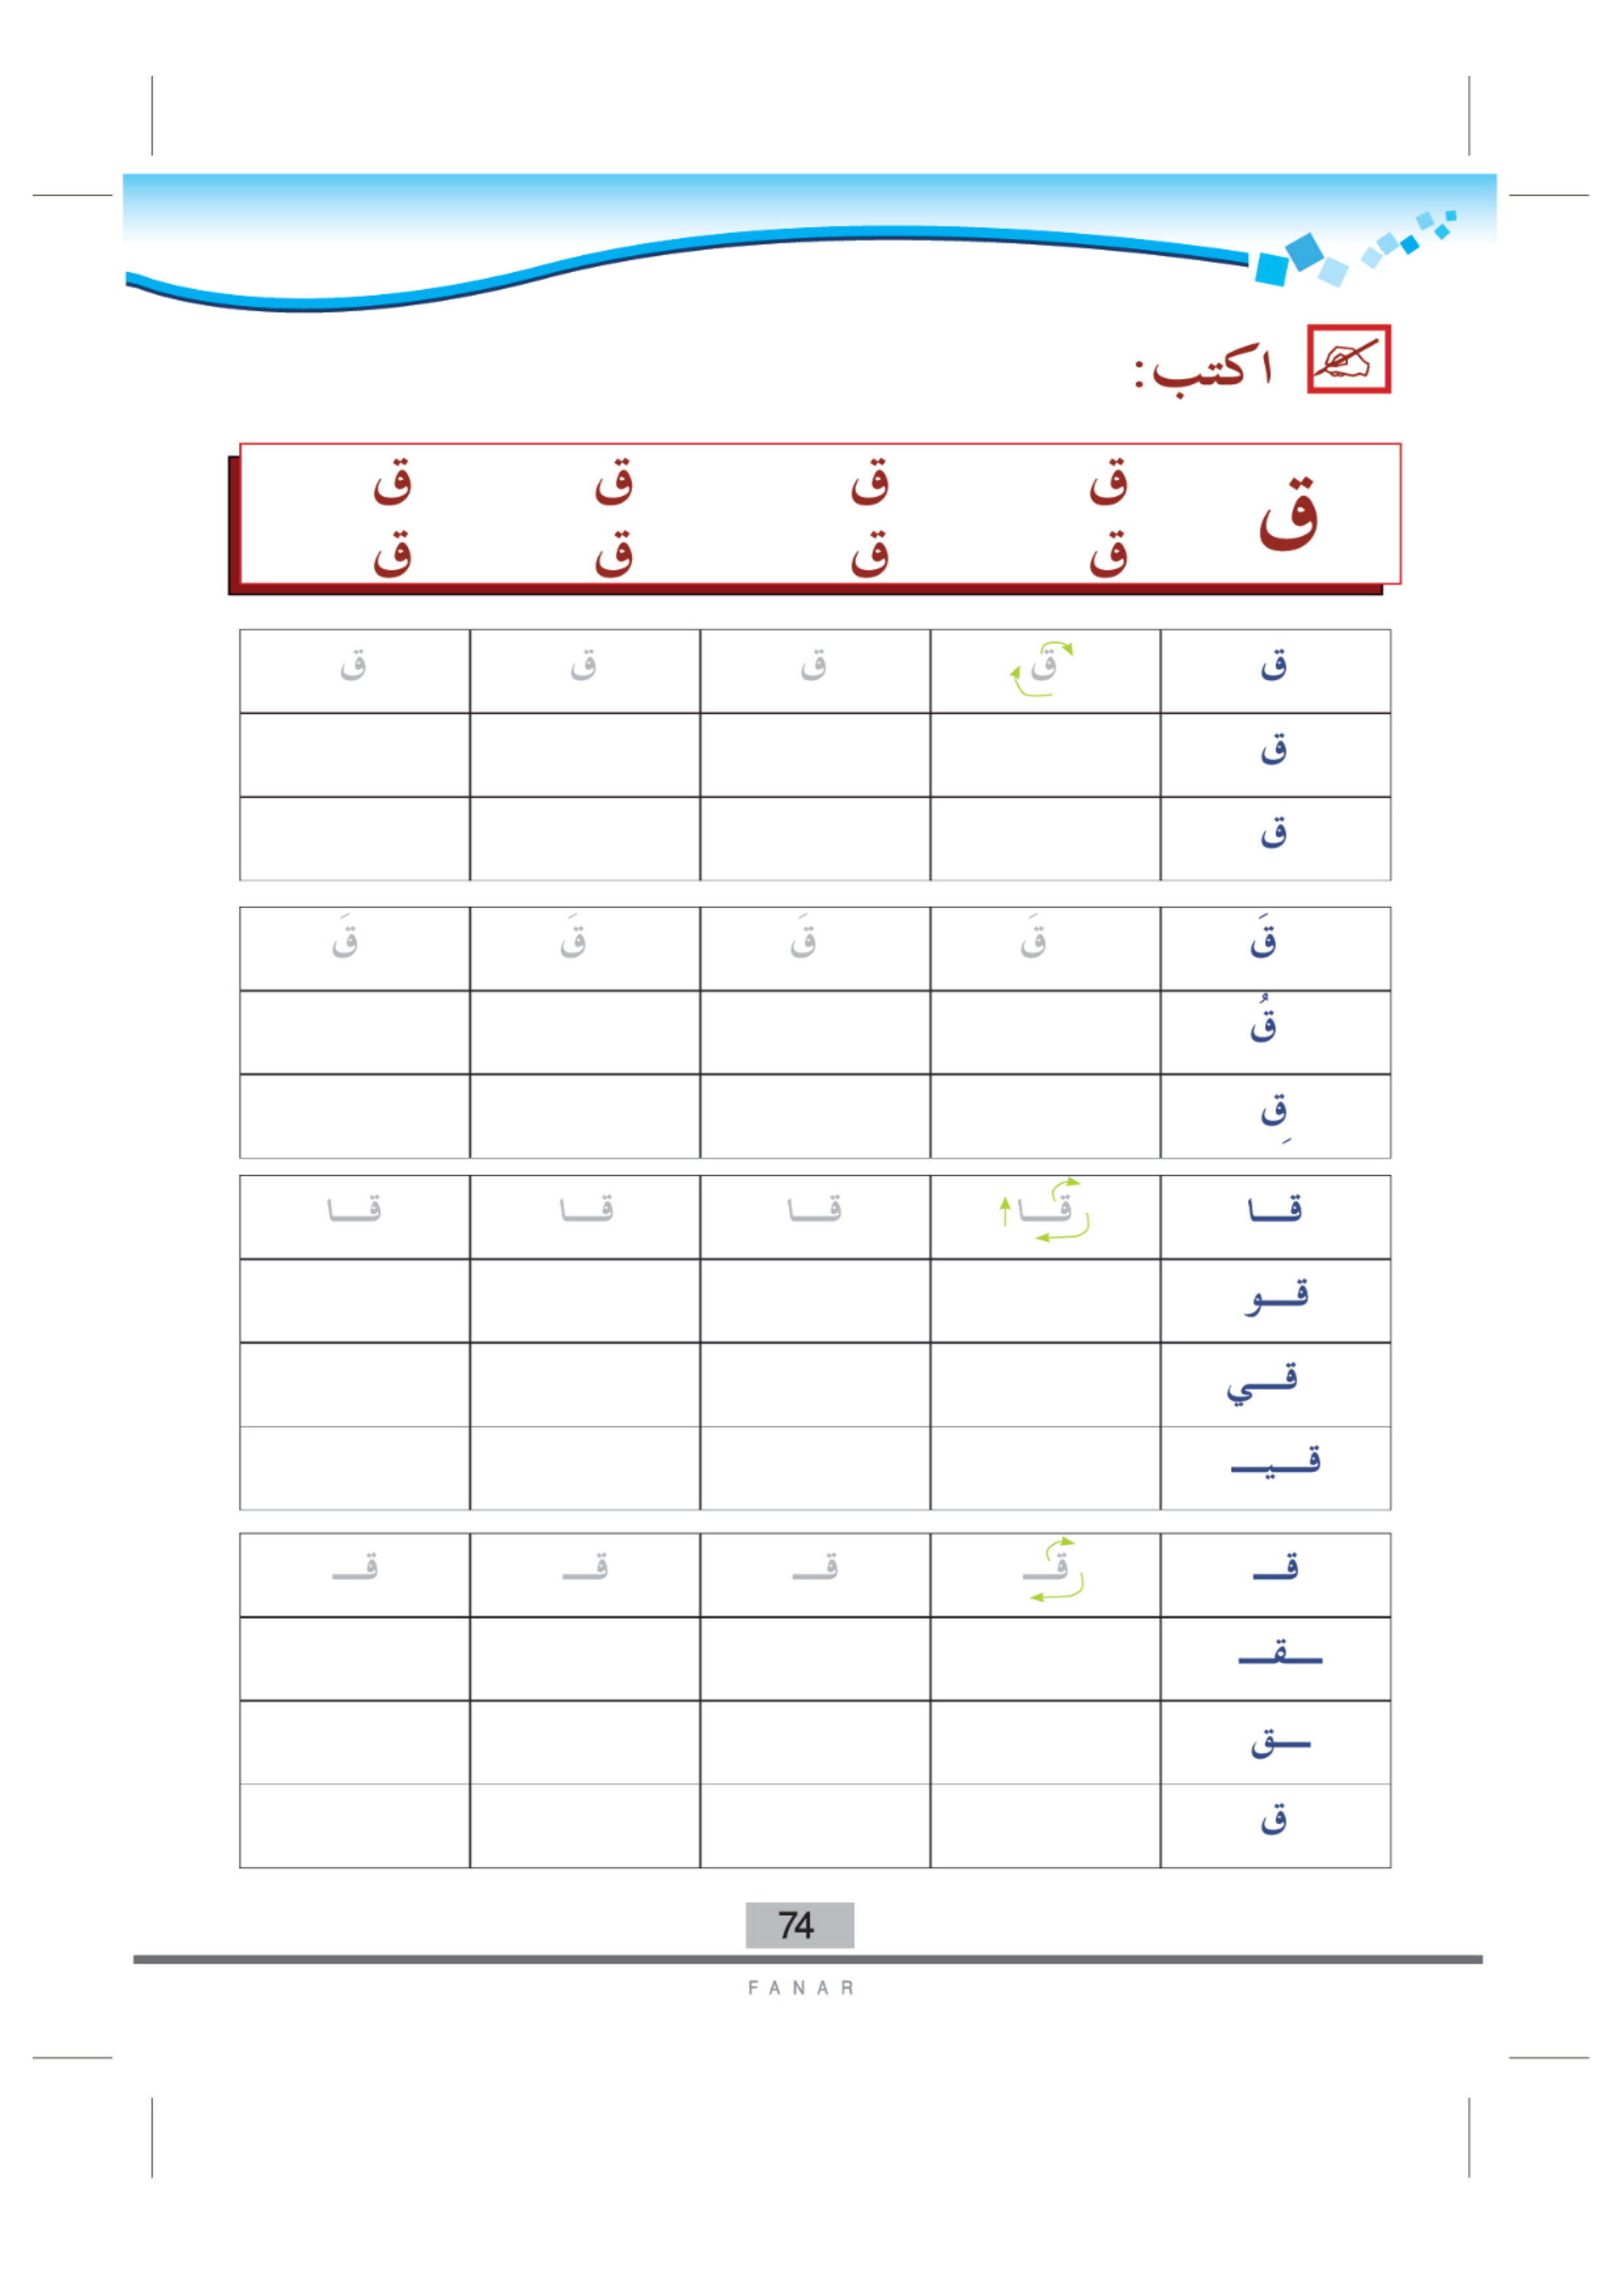 اكتب:
ق ق ق ق ق
ق ق ق ق
ق ق ق ق ق
ق
ق
قَ قَ قَ قَ قَ
قُ
قِ
قـــا قـــا قـــا قـــا قـــا
قـــو
قـــي
قـــيـــ
قـــ قـــ قـــ قـــ قـــ
ـــقـــ
ـــق
ق
74
FANAR